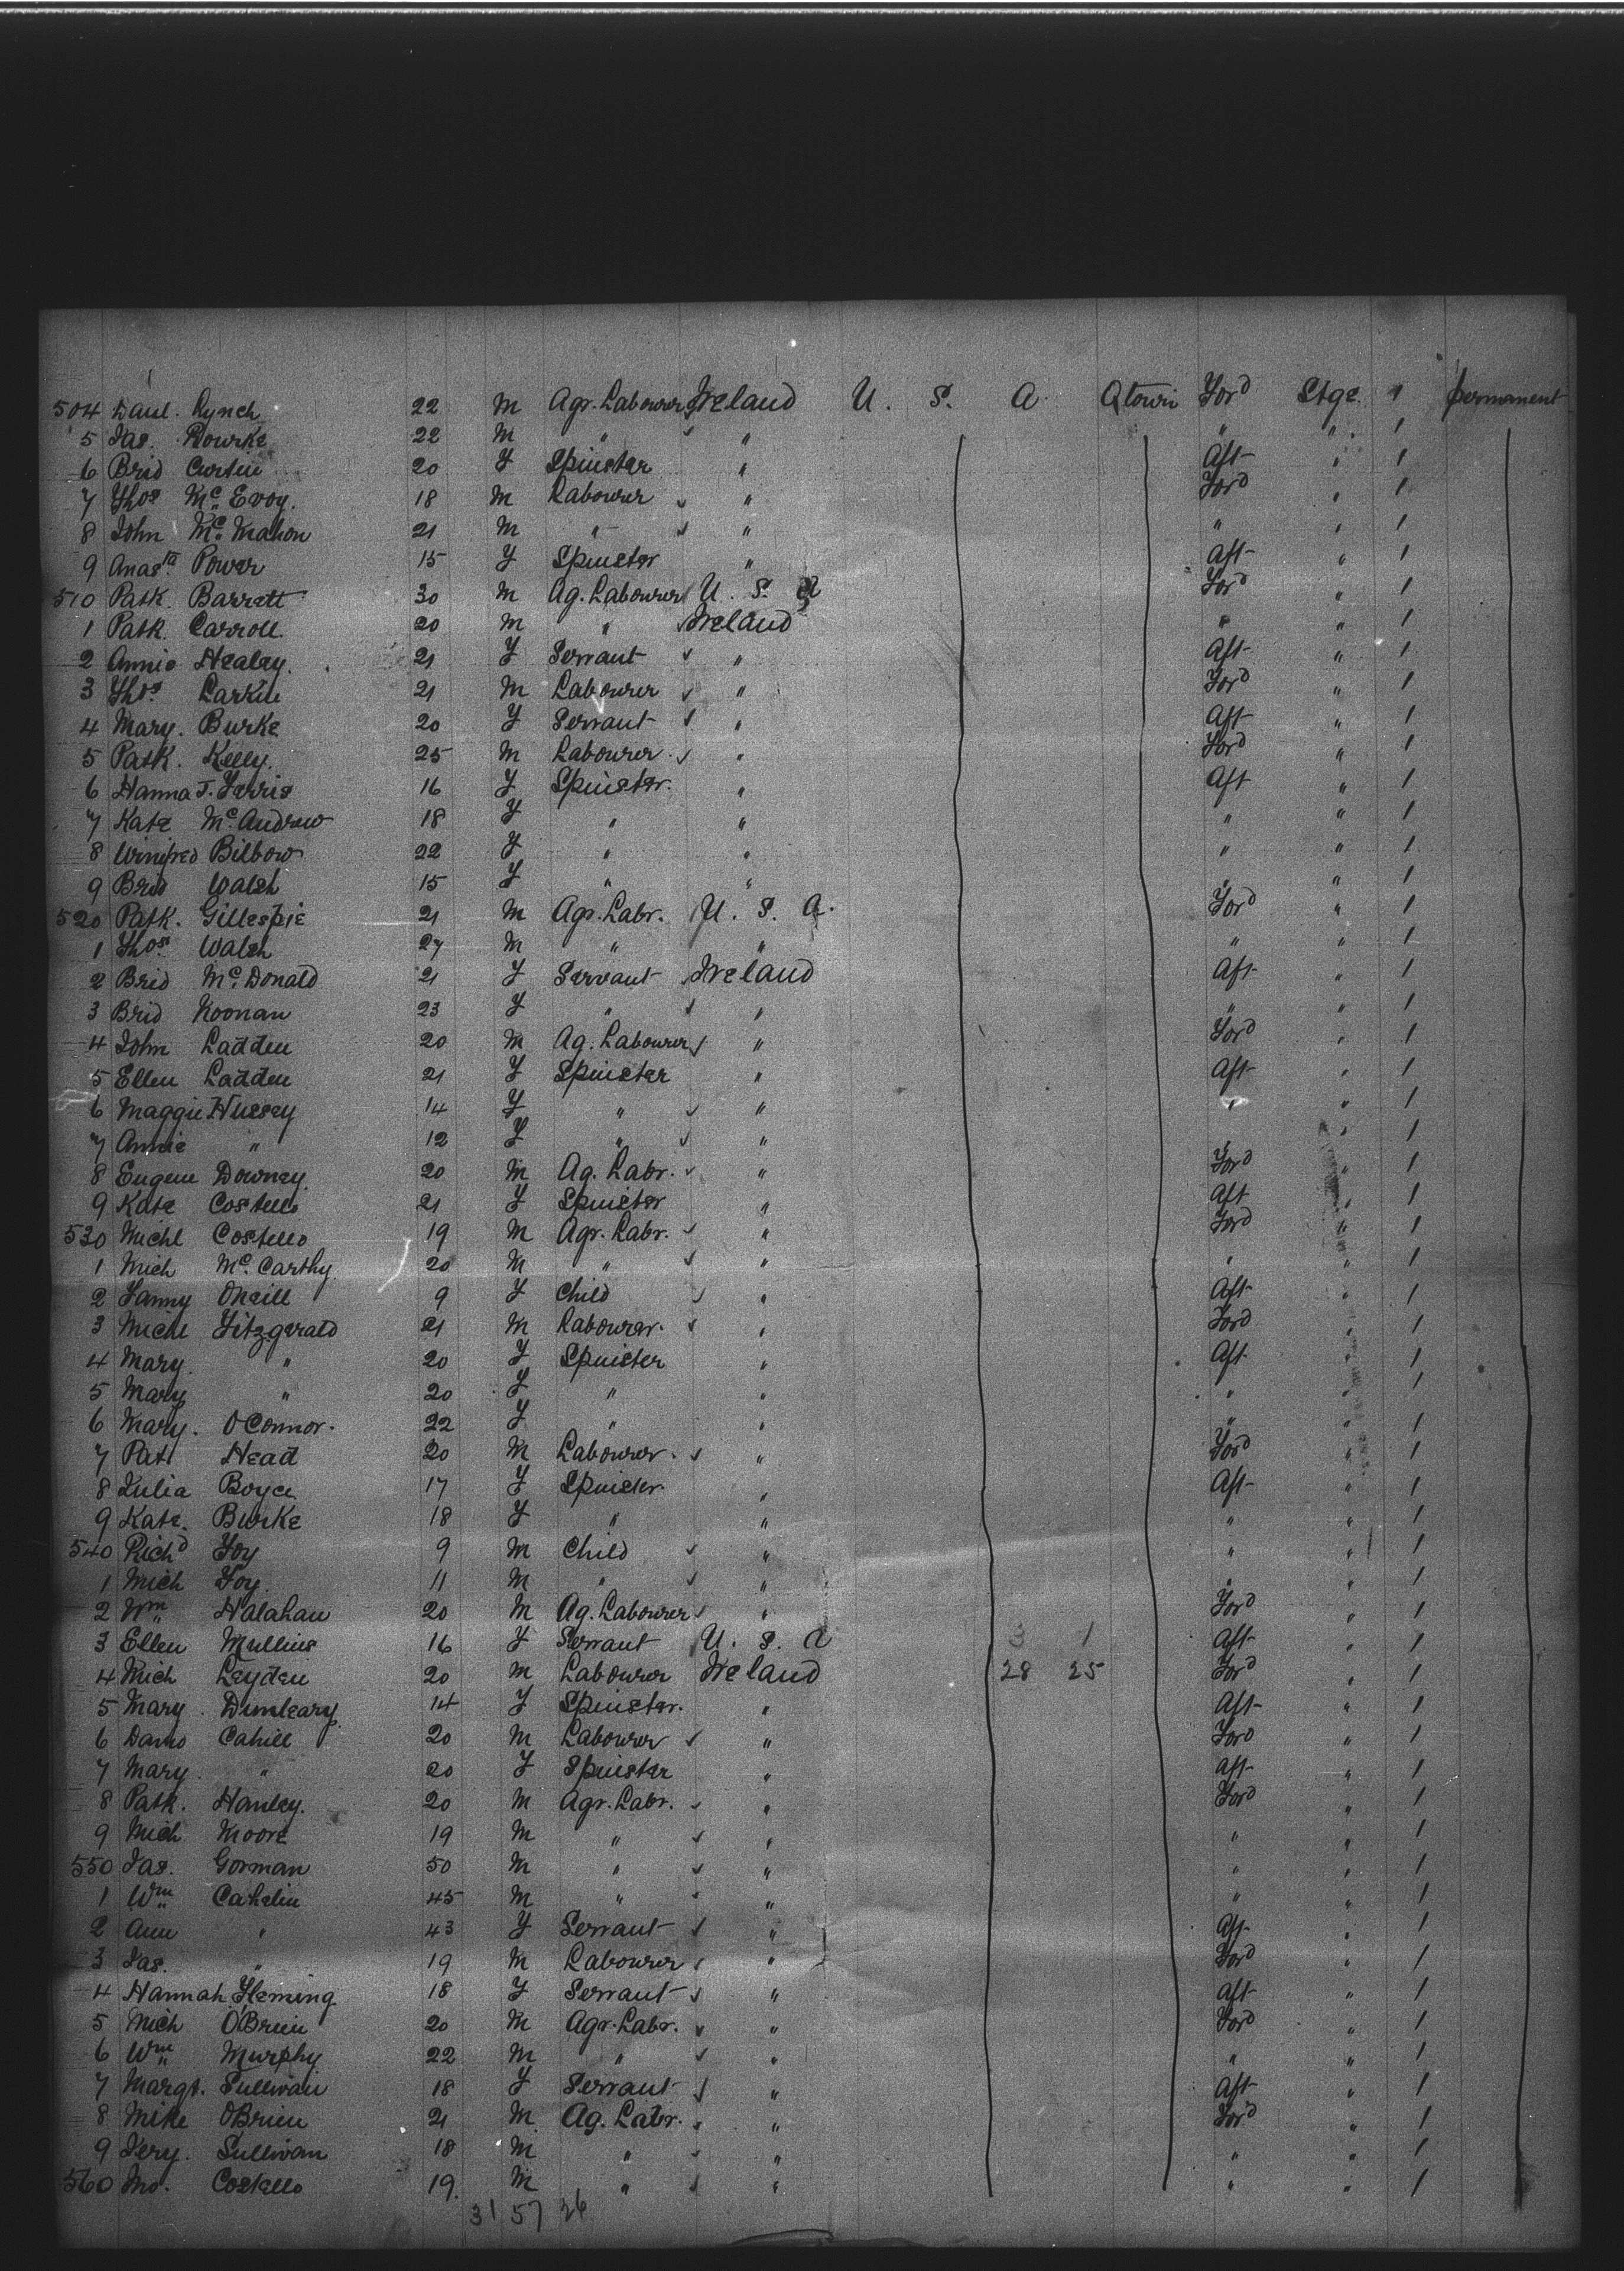 504 Danl. Lynch 22 M Agr. Labourer Ireland U. S. A. Qtown Ford Stge. 1 permanent
5 Jas. Rourke 22 M " " " " 1
6 Brid Curtin 20 F Spinster " Aft " 1
7 Thos Mc. Evoy. 18 M Labourer " Ford " 1
8 John Mc. Mahon 21 M " " " " 1
9 Anasta. Power 15 F Spinster " Aft " 1
510 Patk. Barrett 30 M Ag. Labourer U. S. A Ford " 1
1 Patk. Carroll. 20 M " Ireland " " 1
2 Annie Healey. 21 F Servant " Aft " 1
3 Thos Larkin 21 M Labourer " Ford " 1
4 Mary. Burke 20 F Servant " Aft " 1
5 Patk. Kelly. 25 M Labourer. " Ford " 1
6 Hanna J. Ferris 16 F Spinster. " Aft " 1
7 Kate Mc. Andrew 18 F " " " " 1
8 Winifred Bilbow 22 F " " " " 1
9 Brid Walsh 15 F " " " " 1
520 Patk. Gillespie 21 M Agr. Labr. U. S. A. Ford " 1
1 Thos. Walsh 27 M " " " " 1
2 Brid Mc. Donald 21 F Servant Ireland Aft " 1
3 Brid Noonan 23 F " " " " 1
4 John Ladden 20 M Ag. Labourer " Ford " 1
5 Ellen Ladden 21 F Spinster " Aft " 1
6 Maggie Hussey 14 F " " " " 1
7 Annie " 12 F " " " " 1
8 Eugene Downey. 20 M Ag. Labr. " Ford " 1
9 Kate Costello 21 F Spinster " Aft " 1
530 Michl Costello 19 M Agr. Labr. " Ford " 1
1 Mich Mc. Carthy. 20 M " " " " 1
2 Fanny ONeill 9 F Child " Aft " 1
3 Michl Fitzgerald 21 M Labourer. " Ford " 1
4 Mary. " 20 F Spinster " Aft " 1
5 Mary " 20 F " " " " 1
6 Mary. OConnor. 22 F " " " " 1
7 Patk Head 20 M Labourer. " Ford " 1
8 Julia Boyce 17 F Spinster. " Aft " 1
9 Kate. Burke 18 F " " " " 1
540 Richd Foy 9 M Child " " " 1
1 Mich Foy. 11 M " " " " 1
2 Wm Halahan 20 M Ag. Labourer " Ford " 1
3 Ellen Mullins 16 F Servant U. S. A 3 1 Aft " 1
4 Mich Leyden 20 M Labourer Ireland 28 25 Ford " 1
5 Mary. Dunleary 14 F Spinster. " Aft " 1
6 David Cahill 20 M Labourer " Ford " 1
7 Mary. " 20 F Spinster " Aft " 1
8 Patk. Hanley. 20 M Agr. Labr. " Ford " 1
9 Mich Moore 19 M " " " " 1
550 Jas. Gorman 50 M " " " " 1
1 Wm Cahelin 45 M " " " " 1
2 Ann " 43 F Servant " Aft " 1
3 Jas. " 19 M Labourer " Ford " 1
4 Hannah Fleming 18 F Servant " Aft " 1
5 Mich O'Brien 20 M Agr. Labr. " Ford " 1
6 Wm Murphy 22 M " " " " 1
7 Margt. Sullivan 18 F Servant " Aft " 1
8 Mike OBrien 21 M Ag. Labr. " Ford " 1
9 Jery. Sullivan 18 M " " " " 1
560 Jno. Costello 19. M " " " " 1
31 57 26